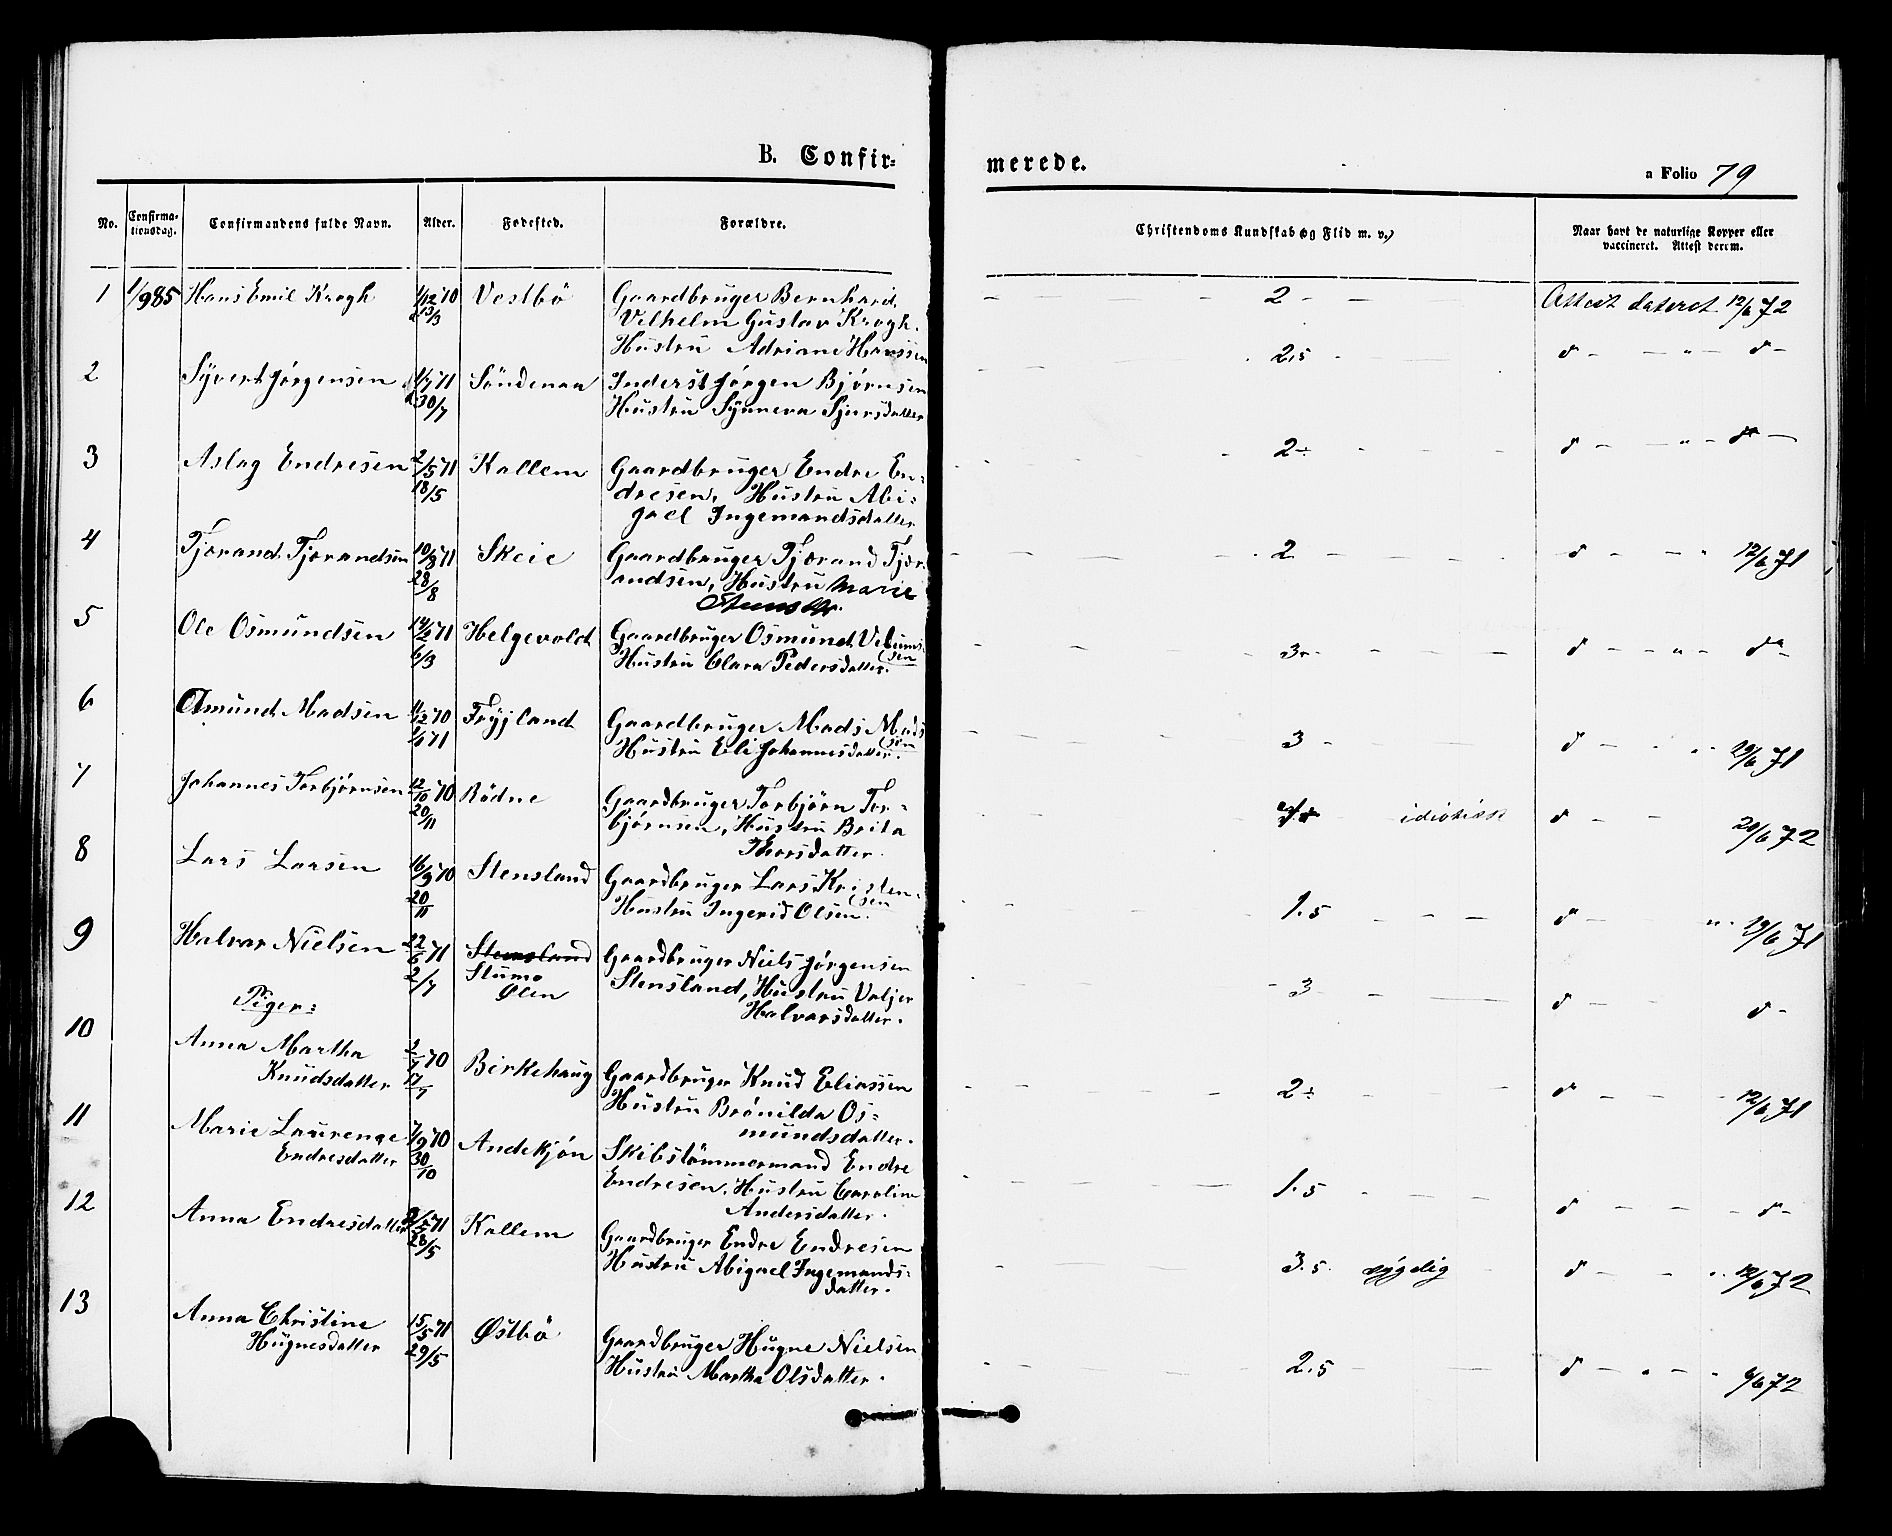 B. Confir-
merede.
a Folio 79
No.
Confirma-
tionsdag.
Confirmandens fulde Navn.
Alder.
Fødested.
Forældre.
Christendoms Kundskab og Flid m. v.
Naar havt de naturlige Kopper eller
vaccineret. Attest derom.
1 1/9 85 Hans Emil Krogh 1/12 70 Vestbö Gaardbruger Bernhard 2 Attest dateret 12/6 72
13/3 Vilhelm Gustav Krogh.
Hustru Adriane Hanssen
2 Syvert Jørgensen 1/7 71 Söndenaa Inderst Jørgen Bjørnsen 2.5 d - " - d -
30/7 Hustru Synneva Sjursdatter
3 Aslag Endresen 2/5 71 Kallem Gaardbruger Endre En- 2÷ d - " - d -
18/5 dresen, Hustru Abi-
gael Ingemandsdatter
4 Tjørand Tjørandsen 10/8 71 Skeie Gaardbruger Tjørand Tjør- 2 d - - " 12/6 71
28/8 andsen, Hustru Marie
5 Ole Osmundsen 14/2 71 Helgevold Gaardbruger Osmund
6/3 sen
Hustru Clara Pedersdatter. 3 d - - " - do
6 Asmund Madsen 11/12 70 Frøjland Gaardbruger Mads Mad-
1/1 71 sen
Hustru Eli Johannesdatter. 3 - d - 29/6 71
7 Johannes Torbjørnsen 12/10 70 Rödne Gaardbruger Torbjörn Tor- idiotisk d - - 20/6 72
20/11 bjørnsen, Hustru Brita
Thorsdatter.
8 Lars Larsen 16/9 70 Stensland Gaardbruger Lars Kristen-
20/11 sen
Hustru Ingerid Olsen. 1.5 d - " 19/6 71
9 Halvar Nielsen 22/6 71 Stensland Gaardbruger Niels Jørgensen 3 d - - d -
2/7 Stumo Stensland, Hustru Valjer
Ølen Halvarsdatter.
Piger:
10 Anna Martha 2/7 70 Birkehaug Gaardbruger Knud Eliassen 2÷ d - - 12/6 71
Knudsdatter 17/7 Hustru Brönilda Os-
mundsdatter.
11 Marie Laurense 7/9 70 Andekjøn Skibstömmermand Endre 1.5 d - - - d -
Endresdatter 30/10 Endresen, Hustru Caroline
Andersdatter.
12 Anna Endresdatter 2/5 71 Kallem Gaardbruger Endre Endresen 3.5 sygelig d - - " 12/6 72
28/5 Hustru Abigael Ingemands-
datter.
13 Anna Christine 15/5 71 Østbö Gaardbruger Hugne Nielsen 2.5 d - " - " 9/6 72
Hugnesdatter 29/5 Hustru Martha Olsdatter.